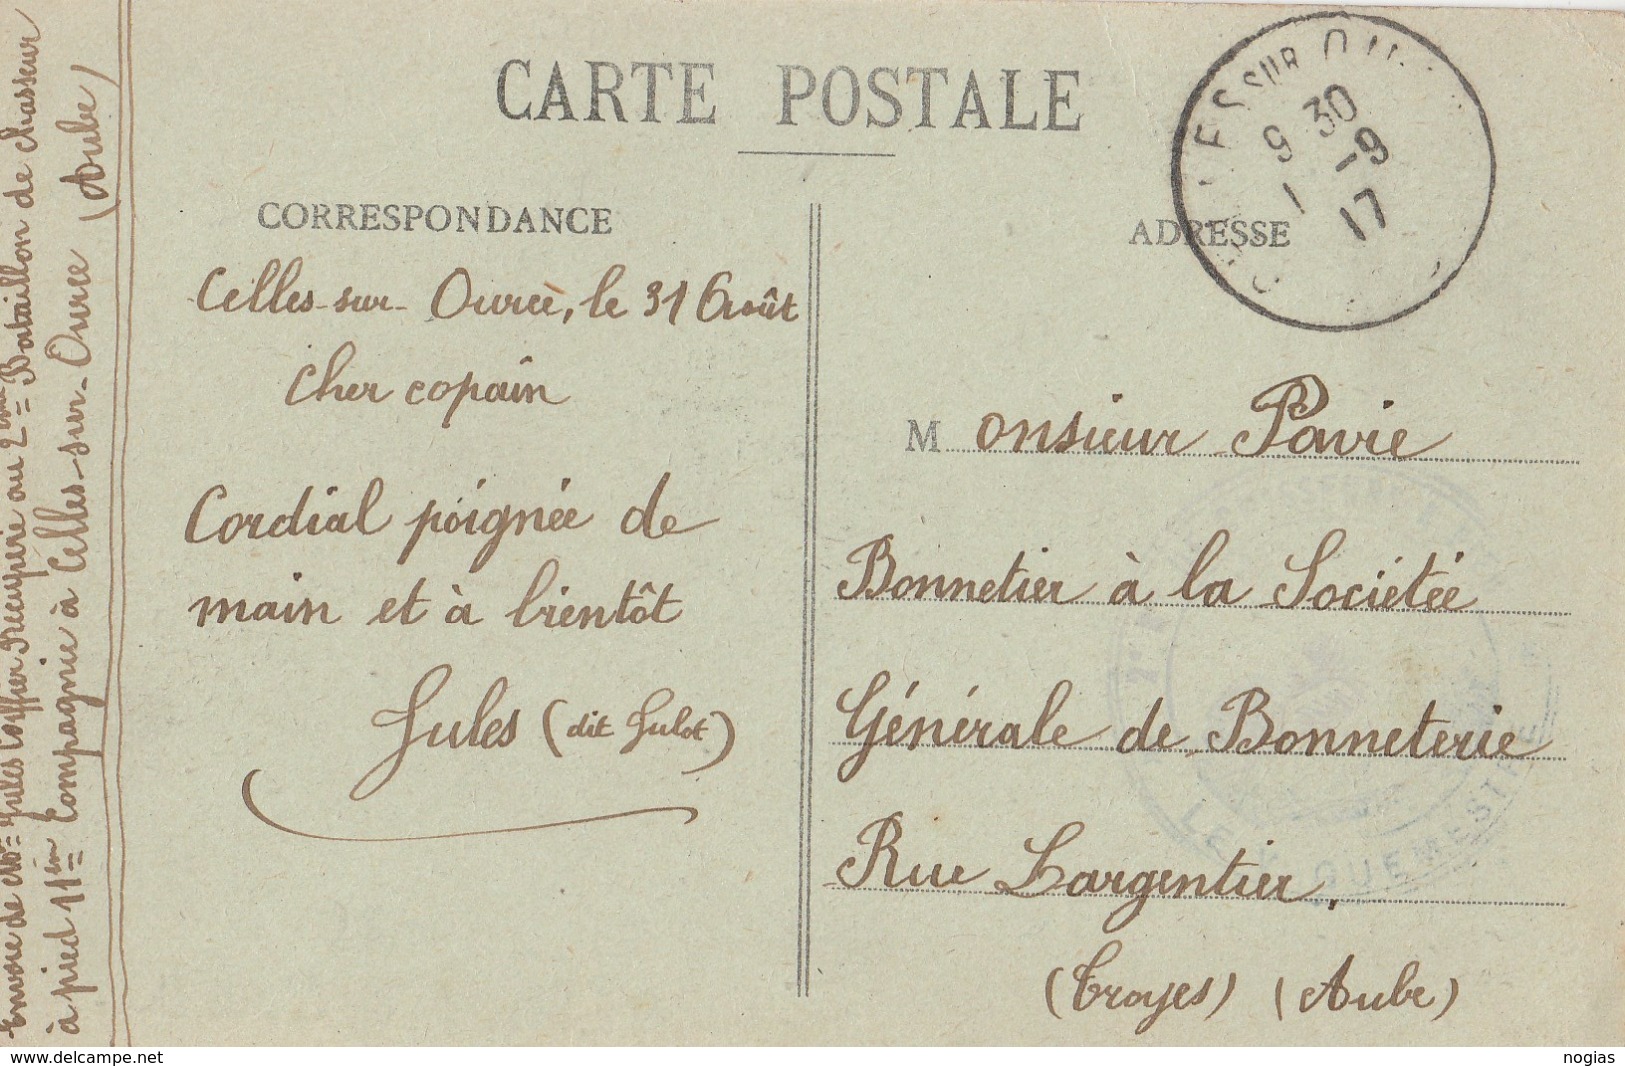 CARTE POSTALE
CORRESPONDANCE
Celles-sur-Ource, le 31 Août
Cher copain
Cordial poignée de
main et à bientôt
Jules (dit Julot)
Envoie de Mr Jules Récupéré au 2ème Bataillon de chasseur
à pied 11èm Compagnie à Celles-sur-Ource (Aube)
ADRESSE
LES SUR OU
9 30
1 -9
17
Monsieur Pavie
Bonnetier à la Sociétée
Générale de Bonneterie
Rue Largentier,
(Troyes) (Aube)
www.delcampe.net
nogias